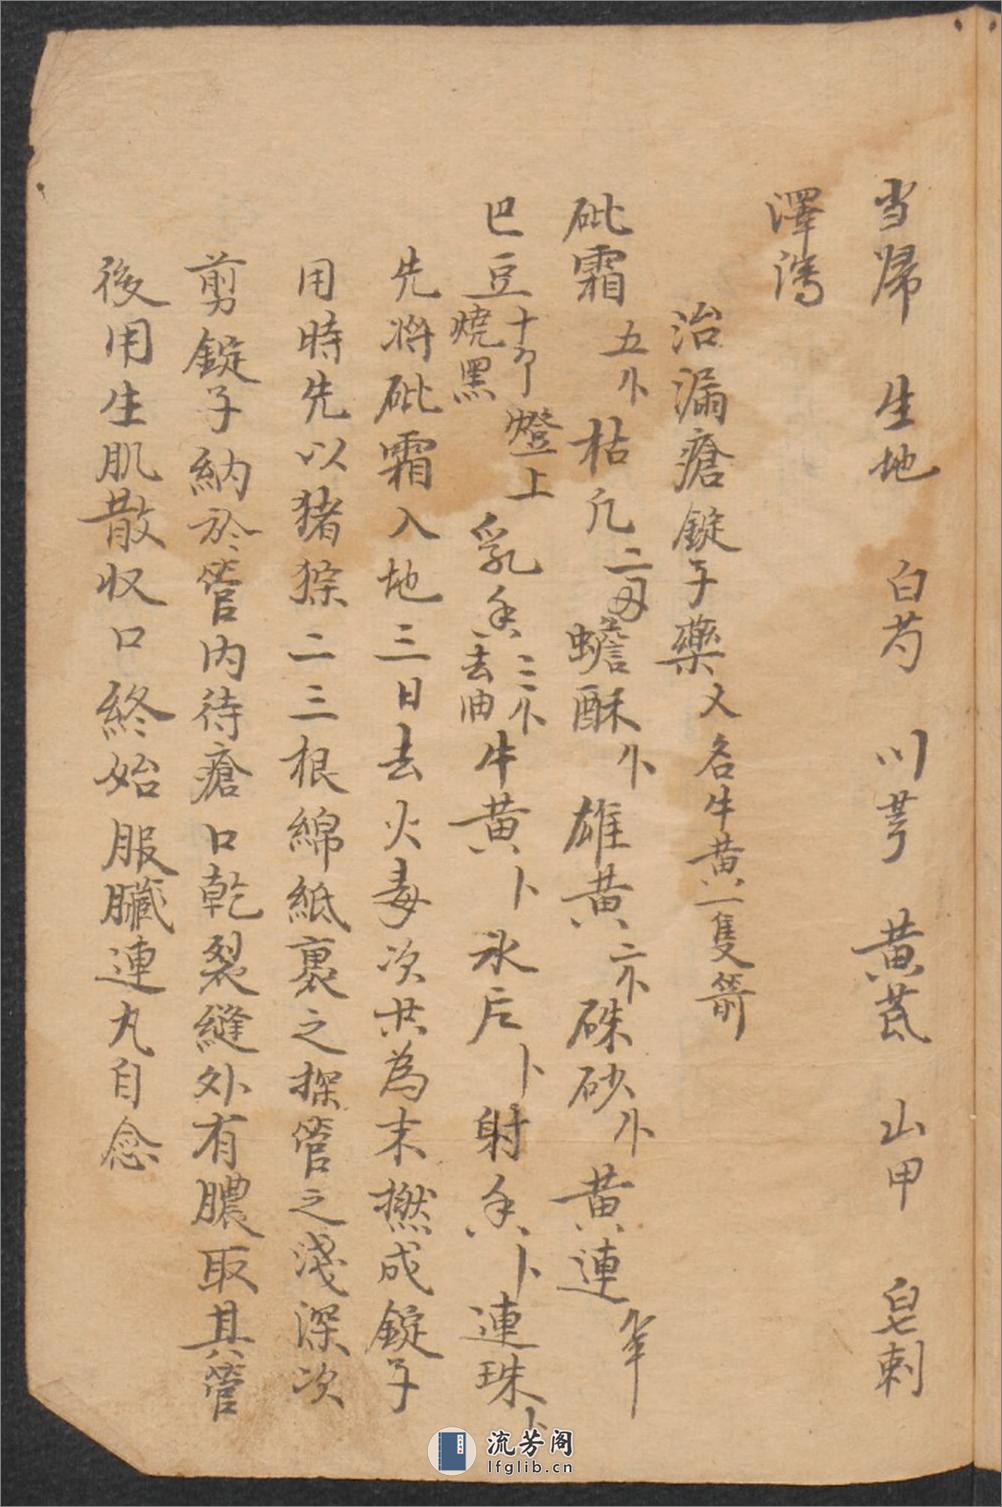 当歸 生地 白芍 川芎 黄芪 山甲 皂刺
澤瀉
治漏瘡錠子藥 又名牛黄一隻箭
砒霜 五卜 枯凡 二 蟾酥 卜 雄黄 二卜 硃砂 卜 黄連
巴豆 十 燒黑 燈上 乳香 三卜 去油 牛黄 卜 氷片 卜 射香 卜 連珠 卜
先将砒霜入地三日去火毒次共為末撚成錠子
用時先以猪猔二三根綿紙裹之探管之淺深次
剪錠子納於管内待瘡口乾裂縫外有膿取其管
後用生肌散収口終始服臟連丸自念
流芳阁
lfglib.cn